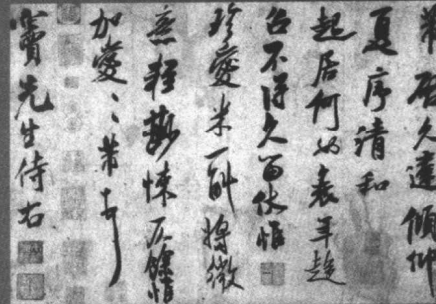 芾啓久違傾仰
夏序清和
起居何如衰年趨
召不得久留伏惟
珍愛米一斛將微
意輕鮮悚仄餘惟
加愛加愛芾頓首
竇先生侍右